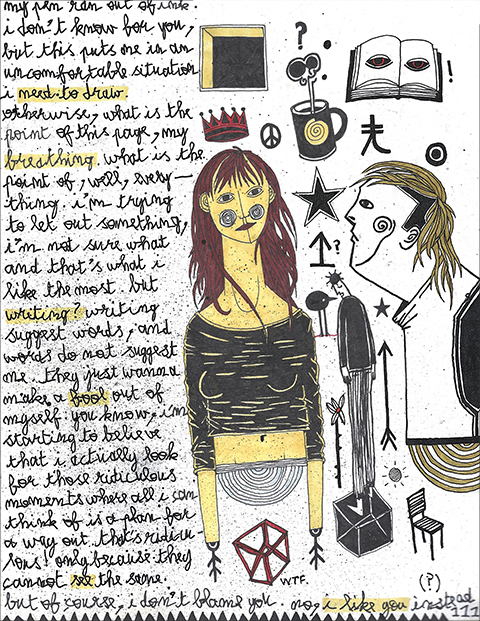 my pen ran out of ink.
i don't know for you,
but this puts me in an
uncomfortable situation
i need to draw.
otherwise, what is the
point of this page, my
breathing. what is the
point of, well, every-
thing. i'm trying
to let out something,
i'm not sure what
and that's what i
like the most. but
writing? writing
suggest words, and
words do not suggest
me. they just wanna
make a fool out of
myself. you know, i'm
starting to believe
that i actually look
for those ridiculous
moments where all i can
think of is a plan for
a way out. that's ridicu
lous! only because they
cannot see the same.
but of course, i don't blame you. no, i like you instead
?
!
?
WTF.
(?)
111